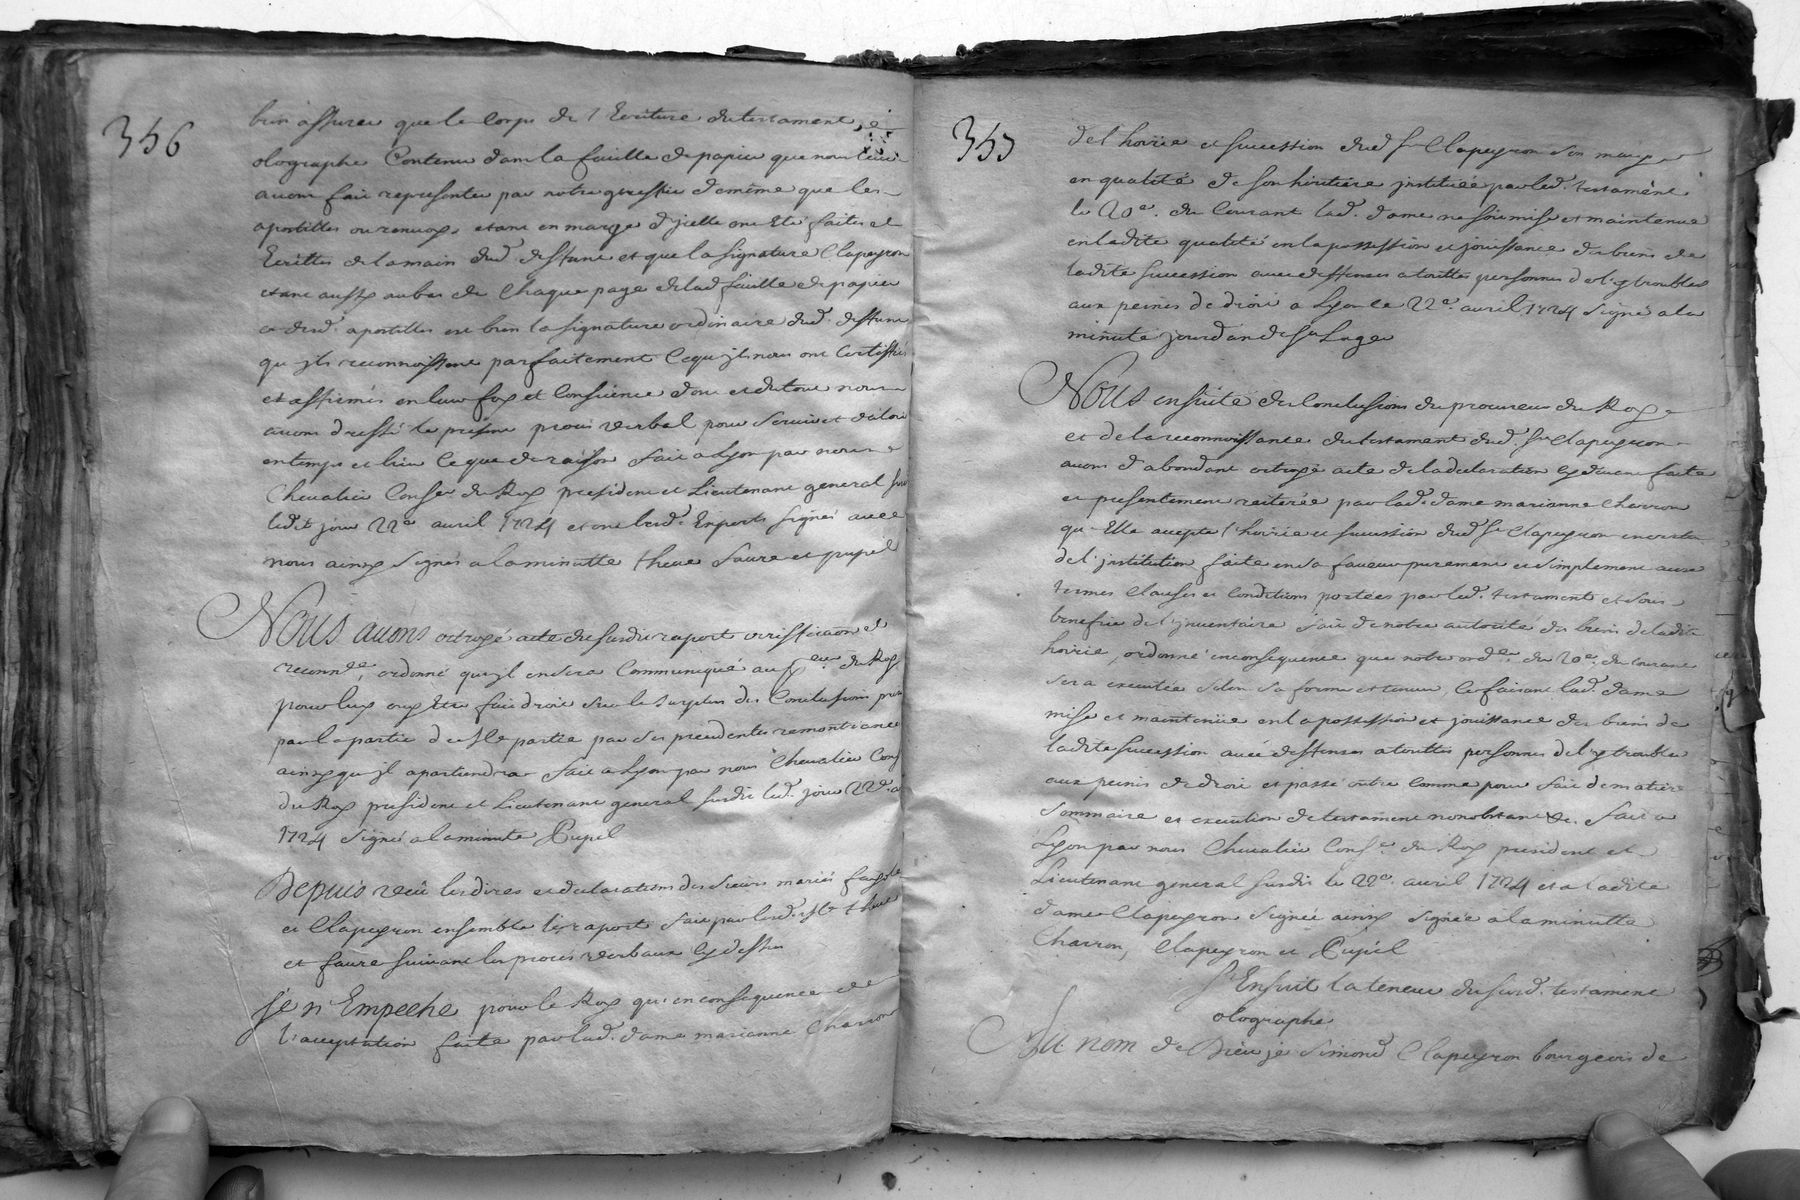 356
bien assurer que le Corps de l'Ecriture du testament
olographe Contenu dans la feuille de papier que nous leur
avons fait representer par notre greffier de même que les
apostilles ou renvoys etant en marge d'jcelle ont Eté faites et
Ecrittes de la main dud. deffunt et que la signature Clapeyron
etant aussy au bas de Chaque page de lad. feuille de papier
et desd. apostilles est bien la signature ordinaire dud. deffunt
qu'jls reconnoissent parfaitement Ce qu'jls nous ont Certiffié
et affirmés en leur foy et Conscience dont et du tout nous
avons dressé le present procés verbal pour servir et valoir
en temps et lieu Ce que de raison fait a Lyon par nous
Chevalier Conser du Roy president et Lieutenant general sus
ledit jour 22e avril 1724 et ont lesd. Experts signés avec
nous ainsy signés a la minutte theve faure et pupil
Nous avons octroyé acte du susdit raport veriffication et
reconnce, ordonné qu'jl en sera Communiqué au peur du Roy
pour luy ouy Etre fait droit sur le surplus des Conclusions
par la partie de par ses precedentes remontrances
ainsy qu'jl apartiendra fait a Lyon par nous Chevalier Cons
du Roy president et Lieutenant general susdit led. jour 22e a
1724 signé a la minute Pupil
Depuis veu les dires et declarations des sieurs mariés
et Clapeyron ensemble le raport fait par lesd. srs theve
et faure suivant les procés verbaux cy dessus
je n'Empeche pour le Roy qu'en consequence de
l'acceptation faite par lad. dame marianne Charron
355
de l'hoirie et succession dud. sr Clapeyron son mary
en qualité de son héritiere jnstituée par led. testament
le 20e. du Courant lad. dame ne soit mise et maintenue
en ladite qualité en la possession et jouissance des biens de
ladite succession avec deffenses a touttes personnes de l'y troubler
aux peines de droit a Lyon le 22e. avril 1724 signé a la
minute jourdan de St Lager
Nous ensuite des Conclusions du procureur du Roy
et de la reconnoissance du testament dud. sr Clapeyron
avons d'abondant octroyé acte de la declaration cy devant faite
et presentement reiterée par lad. dame marianne Charron
qu'Elle accepte l'hoirie et succession dud. sr Clapeyron en vertu
de l'jnstitution faite en sa faveur purement et simplement aux
termes clauses et Conditions portées par led. testament et sous
benefice de l'jnventaire fait de notre autorité des biens de ladite
hoirie, ordonné en consequence que notre ordce. du 20e. du courant
sera executée selon sa forme et teneur, Ce faisant lad. dame
mise et maintenüe en la possession et jouissance des biens de
ladite succession avec deffenses a touttes personnes de l'y troubler
aux peines de droit et passé outre Comme pour fait de matiere
sommaire et execution de testament nonobstant &c. fait a
Lyon par nous Chevalier Conser. du Roy president et
Lieutenant general susdit le 22e. avril 1724 et a ladite
dame Clapeyron signée ainsy signée a la minutte
Charron, Clapeyron et Pupil
S'Ensuit la teneur du susd. testament
olographe
Au nom de Dieu je Simond Clapeyron bourgeois de